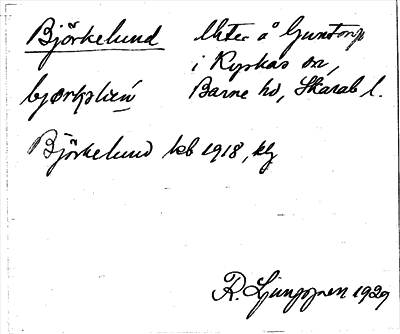 Björkelund Uter å Guntorp
i Ryskas sn,
Barne hd, Skarab l.
Björkelund kb 1918,
R. Ljunggren 1929